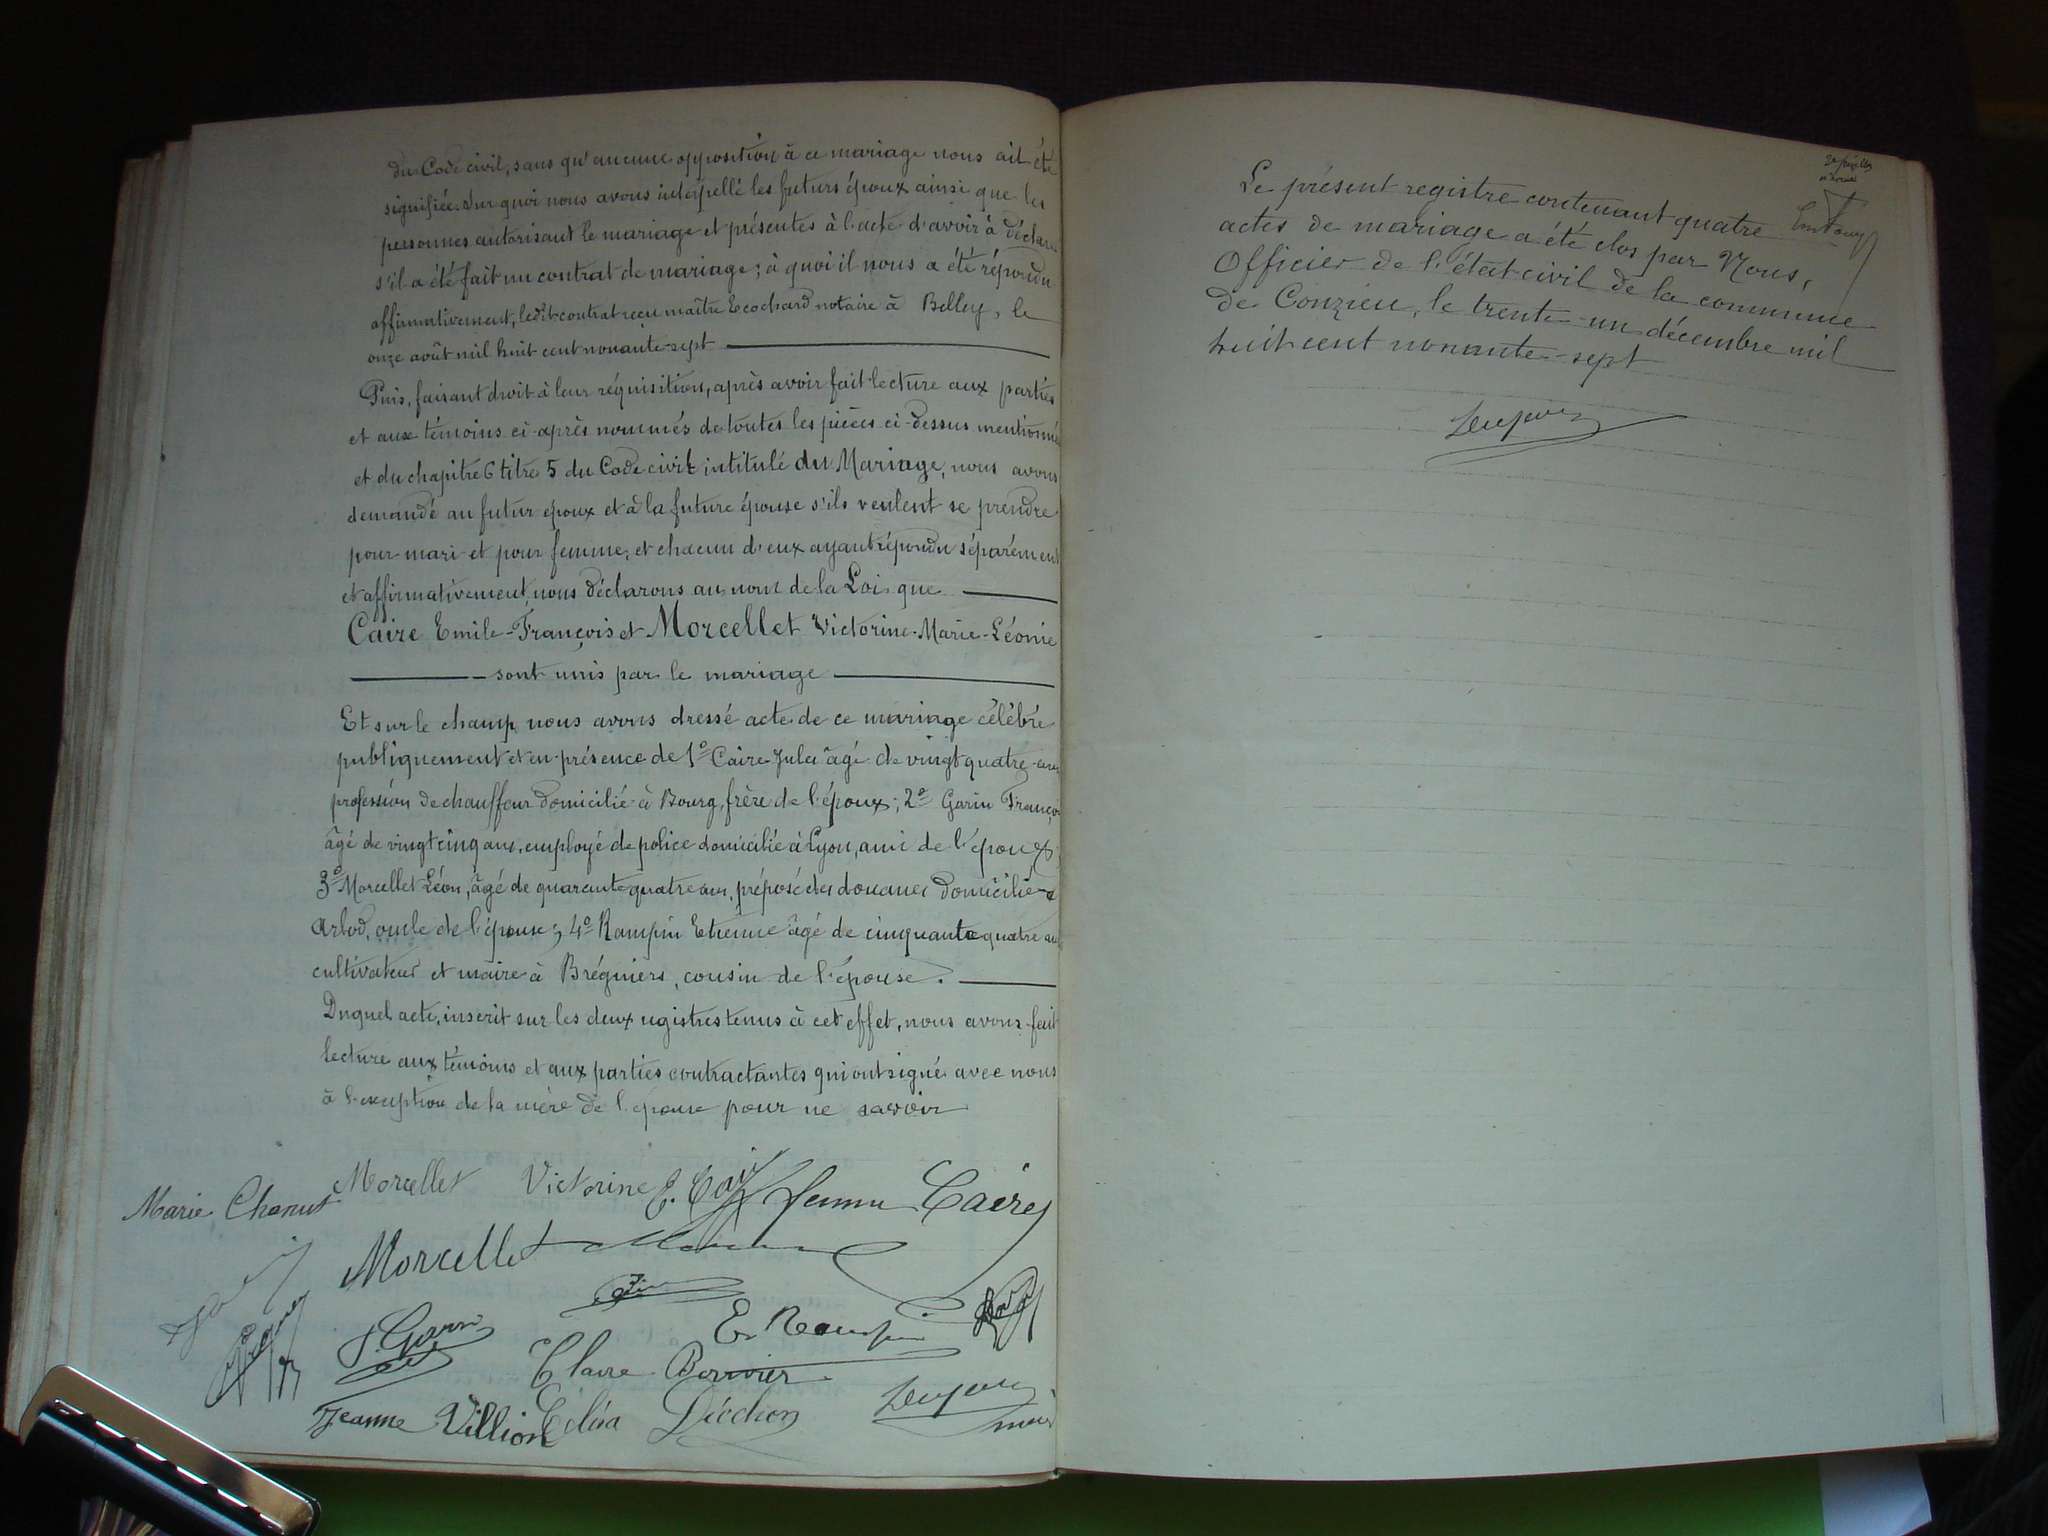 du Code civil, sans qu'aucune opposition à ce mariage nous ait été
signifiée. Sur quoi nous avons interpellé les futurs époux ainsi que les
personnes autorisant le mariage et présentes à l'acte d'avoir à déclarer
s'il a été fait un contrat de mariage; à quoi il nous a été répondu
affirmativement, ledit contrat reçu maître Ecochard notaire à Belley, le
onze août mil huit cent nonante-sept
Puis, faisant droit à leur réquisition, après avoir fait lecture aux parties
et aux témoins ci-après nommés de toutes les pièces ci-dessus mentionnées
et du chapitre 6 titre 5 du Code civil intitulé du Mariage, nous avons
demandé au futur époux et à la future épouse s'ils veulent se prendre
pour mari et pour femme, et chacun d'eux ayant répondu séparément
et affirmativement, nous déclarons au nom de la Loi que
Caire Emile-François et Morcellet Victorine-Marie-Léonie
sont unis par le mariage
Et sur le champ, nous avons dressé acte de ce mariage célébré
publiquement et en présence de 1º Caire Jules âgé de vingt quatre ans
profession de chauffeur domicilié à Bourg, frère de l'époux; 2º Garin François
âgé de vingt cinq ans, employé de police domicilié à Lyon, ami de l'époux;
3º Morcellet Léon, âgé de quarante quatre ans, préposé des douanes domicilié à
Arbod, oncle de l'épouse; 4º Rampin Etienne âgé de cinquante quatre ans
cultivateur et maire à Brégniers, cousin de l'épouse.
Duquel acte, inscrit sur les deux registres tenus à cet effet, nous avons fait
lecture aux témoins et aux parties contractantes qui ont signé avec nous
à l'exception de la mère de l'épouse pour ne savoir
Marie Chanut Morcellet Victorine E. Caire femme Caire
Morcellet
J. Garin E. Rampin
Claire Borvier
Jeanne Villion Léchon
maire
Le présent registre contenant quatre
actes de mariage a été clos par Nous,
Officier de l'état civil de la commune
de Conzieu, le trente-un décembre mil
huit cent nonante-sept